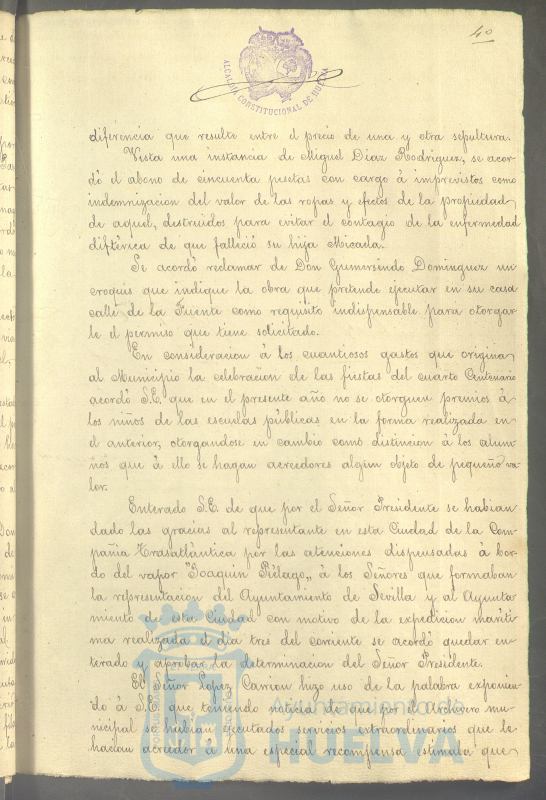 40
ALCALDIA CONSTITUCIONAL DE HUELVA
diferencia que resulte entre el precio de una y otra sepultura.
Vista una instancia de Miguel Diaz Rodriguez, se acor-
dó el abono de cincuenta pesetas con cargo á imprevistos como
indemnizacion del valor de las ropas y efectos de la propiedad
de aquel, destruidos para evitar el contagio de la enfermedad
diftérica de que falleció su hija Micaela.
Se acordó reclamar de Don Gumersindo Dominguez un
croquis que indique la obra que pretende ejecutar en su casa
calle de la Fuente como requisito indispensable para otorgar
le el permiso que tiene solicitado.
En consideracion á los cuantiosos gastos que origina
al Municipio la celebracion de las fiestas del cuarto Centenario
acordó S.E. que en el presente año no se otorguen premios á
los niños de las escuelas públicas en la forma realizada en
el anterior, otorgandose en cambio como distincion á los alum-
nos que á ello se hagan acreedores algun objeto de pequeño va-
lor.
Enterado S.E. de que por el Señor Presidente se habian
dado las gracias al representante en esta Ciudad de la Com-
pañia Trasatlántica por las atenciones dispensadas á bor-
do del vapor "Joaquin Piélago„ á los Señores que formaban
la representacion del Ayuntamiento de Sevilla y al Ayunta-
miento de esta Ciudad con motivo de la expedicion maríti-
ma realizada el dia tres del corriente se acordó quedar en-
terado y aprobar la determinacion del Señor Presidente.
El Señor Lopez Carrion hizo uso de la palabra exponien-
do á S.E. que teniendo noticia de que por el archivero mu-
nicipal se habian ejecutados servicios extraordinarios que le
hacian acreedor á una especial recompensa estimaba que
Ayuntamiento de
HUELVA